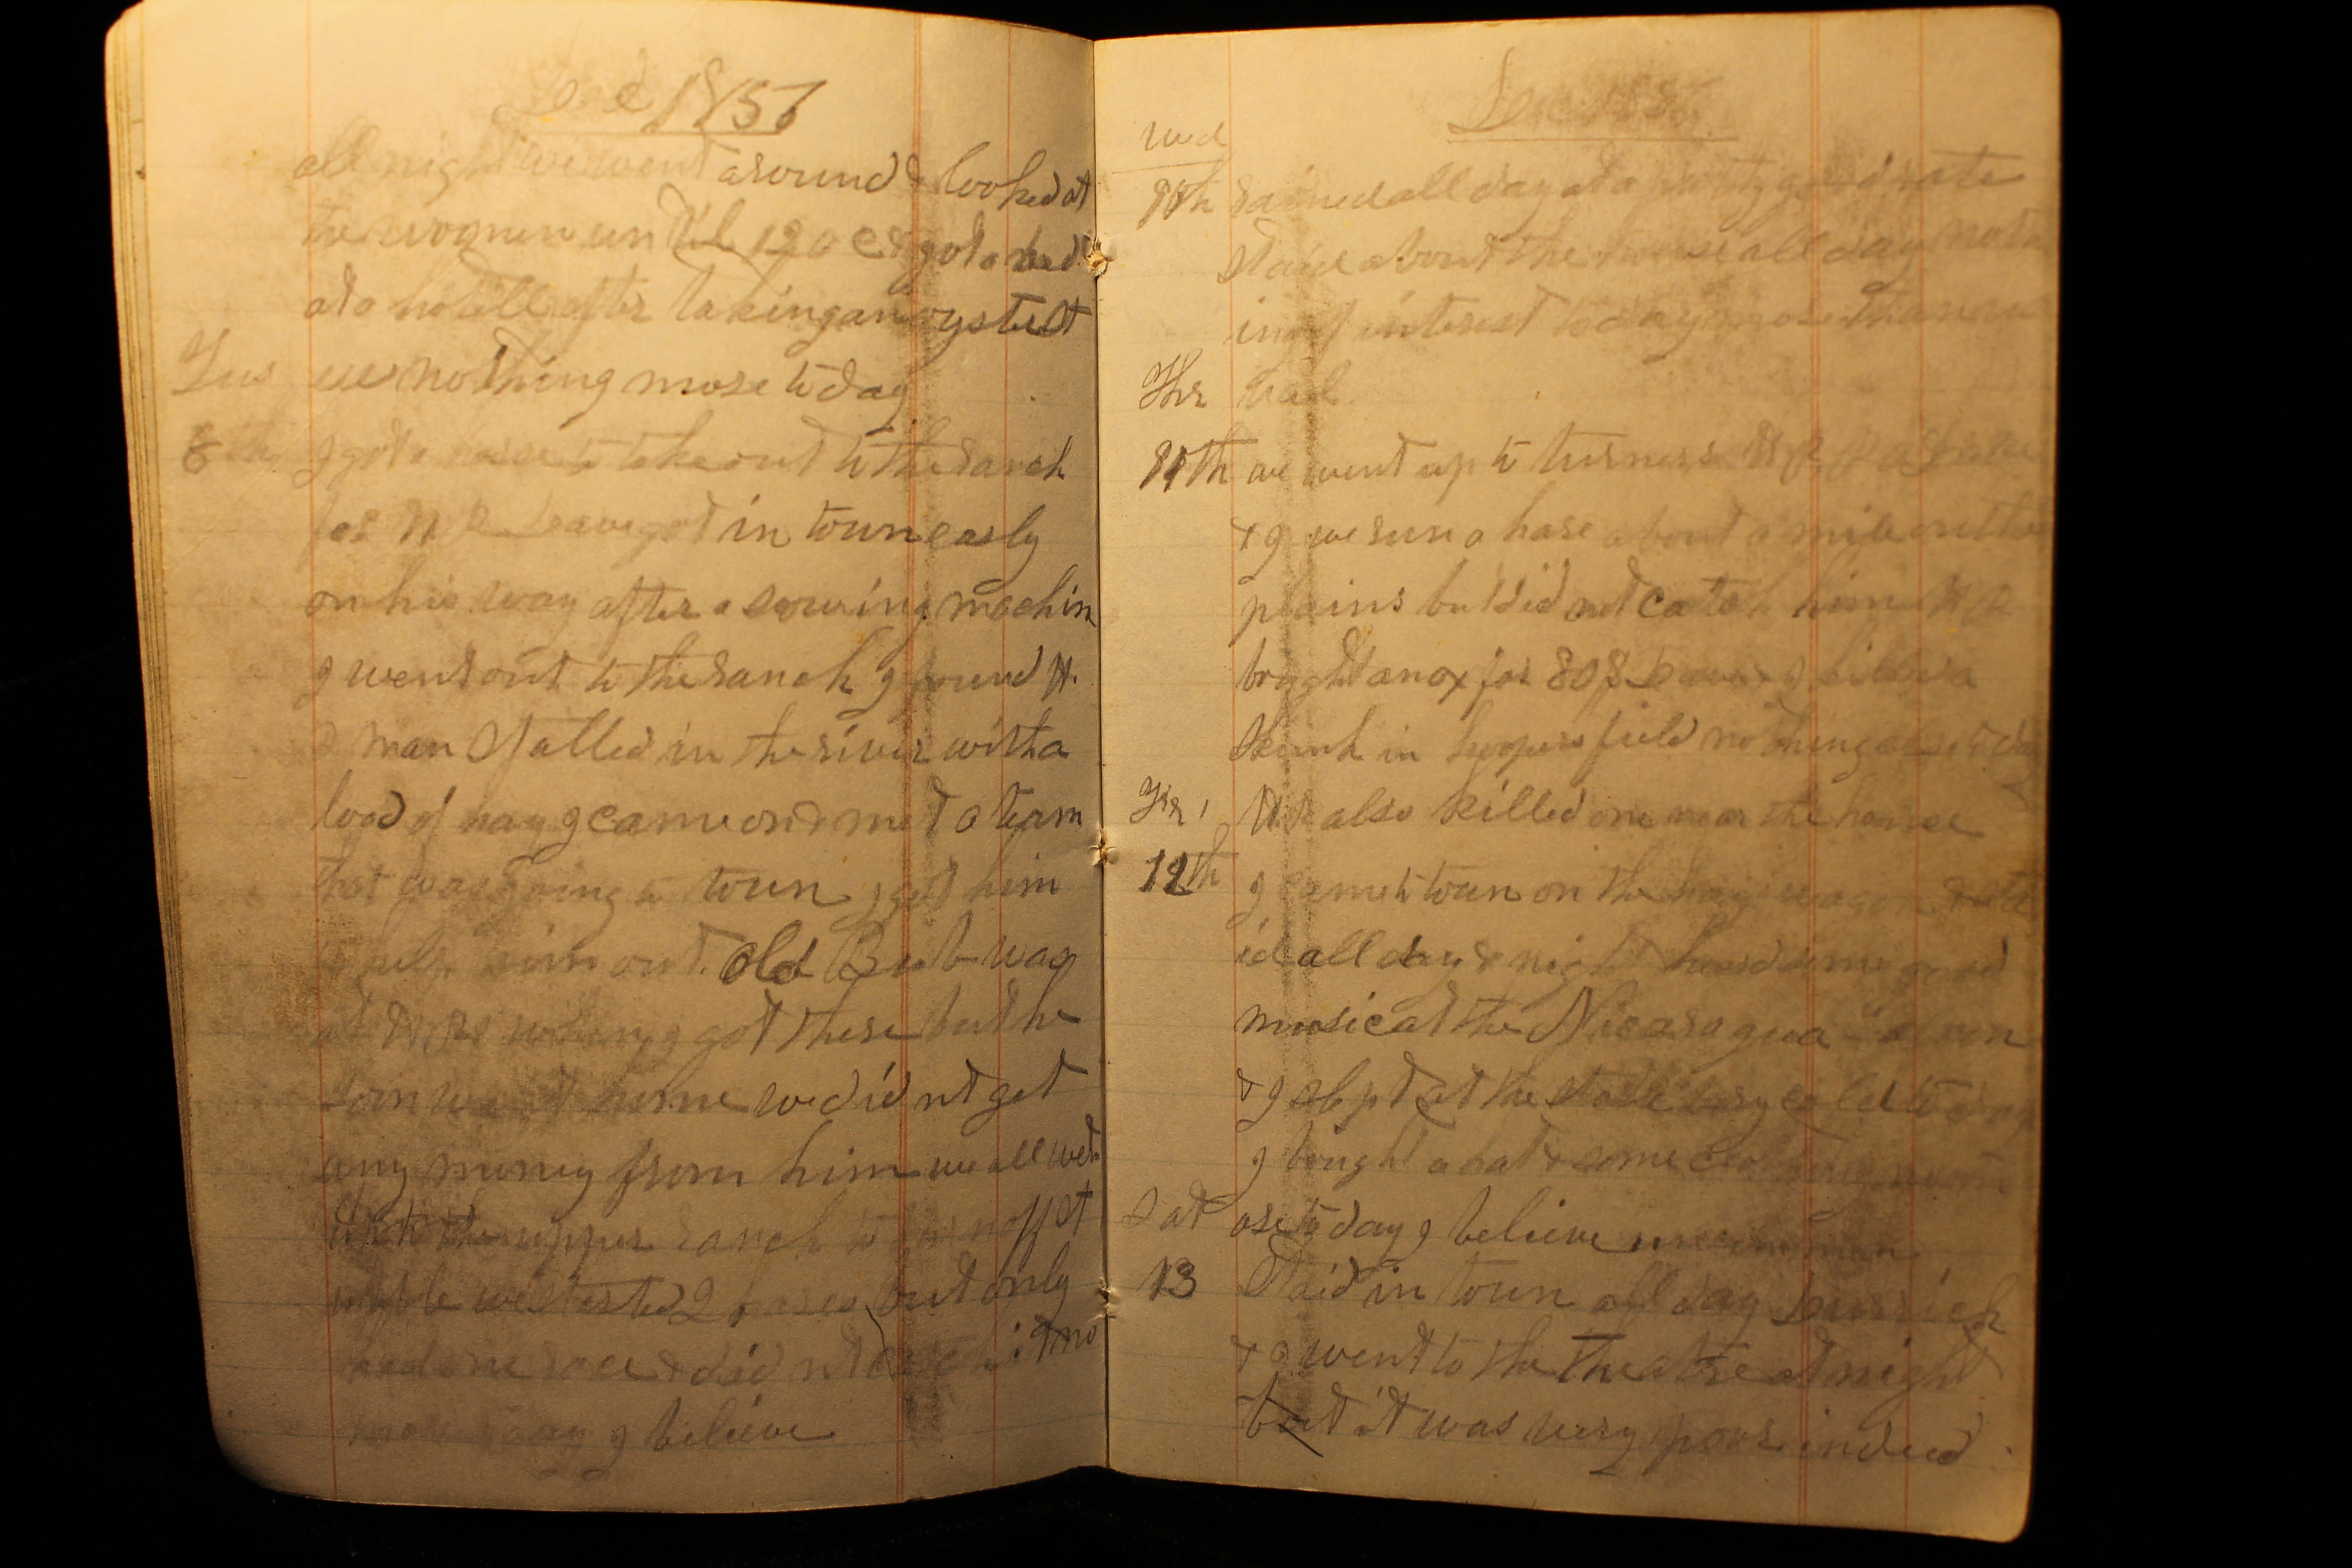 Dec 1857
all night we went around & looked at
the women until 12 o c & got a bed
at a hotell after taking an oyster st
Tus ew nothing more to day
8 I got a horse to take out to the ranch
for W R Dave got in town early
on his way after a sowing machin
I went out to the ranch I found W.
R man stalled in the river with a
load of hay I came on & met a team
that was going to town I got him
to help him out. Old was
at W Rs when I got there but he
soon went home we did nt get
any money from him we all went
to the upper ranch to
while we started 2 hares but only
had one race & did nt catch it no
more to day I believe
Dec 1857
Wed
10th rained all day at a pretty good rate
staid about the house all day noth
ing of interest to day more than
Thr bad
11th we went up to turners W R
& I we run a hare about a mile on the
plains but did not catch him W R
bought an ox for 80$ Dave & I killed a
skunk in field nothing else to day
Fr, W R also killed one near the house
12th I came to town on the hay wagon & sta
id all day & night heard some good
music at the Nicaragua
& I slept at the very cold to day
I bought a hat & some clothing no m
Sat ore to day I believe
13 Staid in town all day
& I went to the Theatre at night
but it was very poor indeed